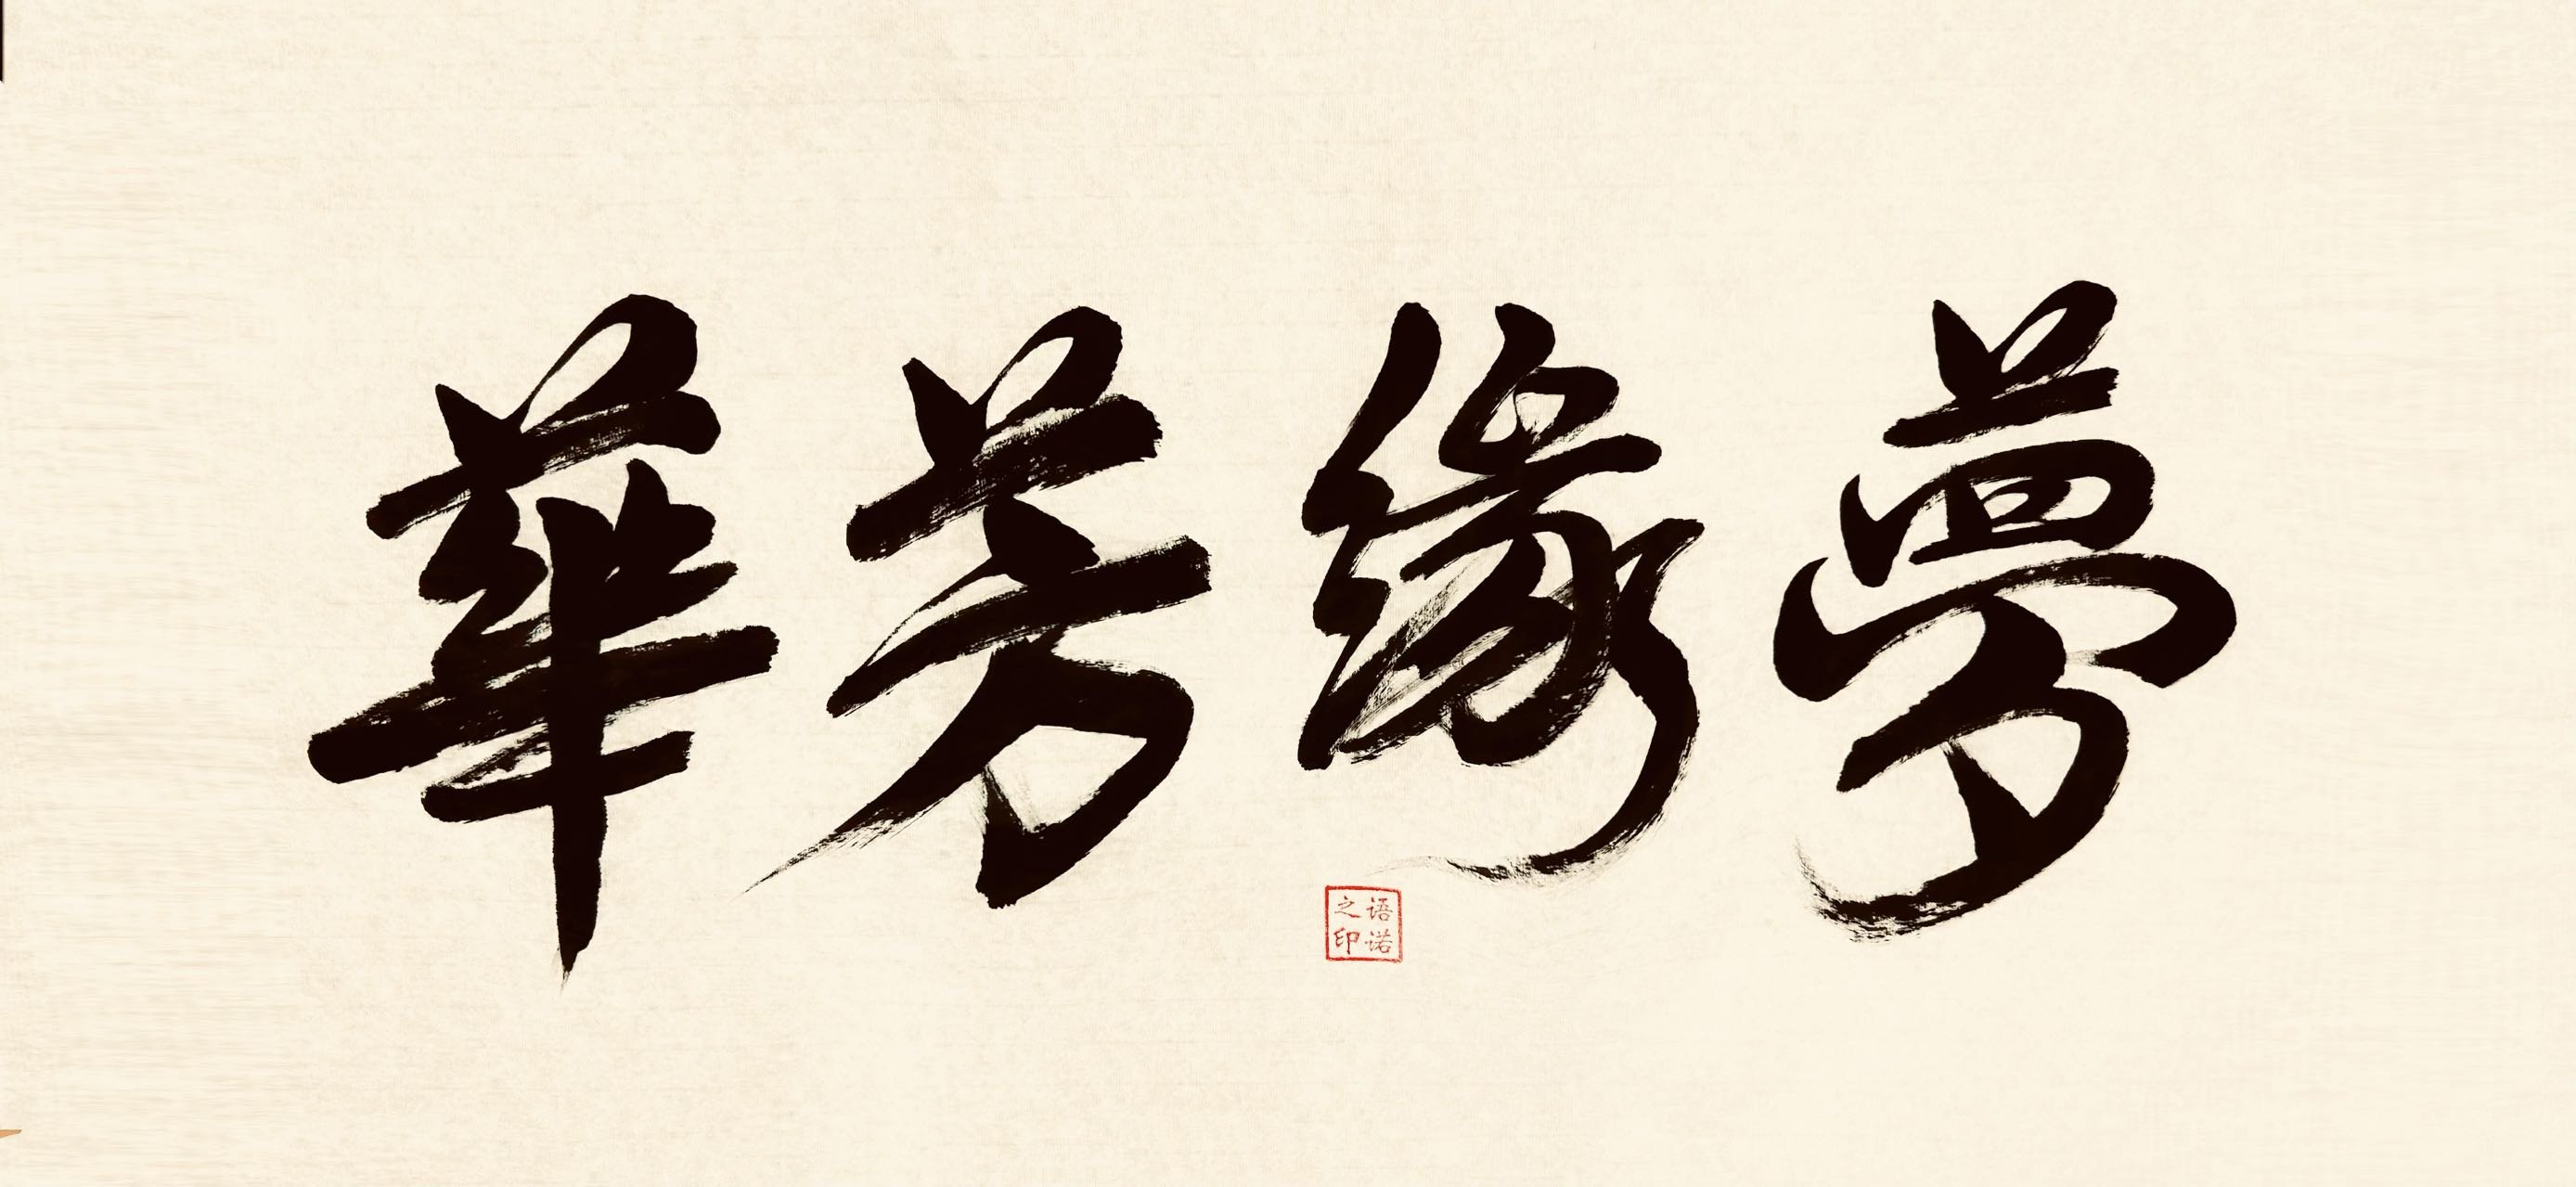 夢緣芳華
语诺之印